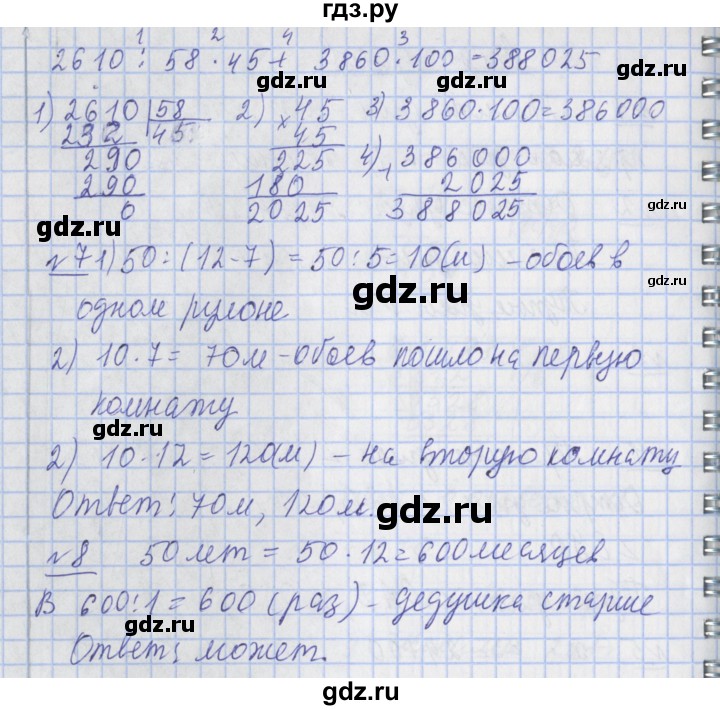 гдз.ру
1 2 4 3
2610 : 58 · 45 + 3860 · 100 = 388025
gdz.ru gdz.ru
1) 2610 | 58 2) × 45 3) 3860 · 100 = 386000
232 45 45 4) + 386000
290 225 2025
290 180 388025
0 2025
gdz.ru gdz.ru gdz.ru gdz.ru
№7 1) 50 : (12 - 7) = 50 : 5 = 10 (м) - обоев в
одном рулоне
gdz.ru
2) 10 · 7 = 70 м - обоев пошло на первую
комнату
2) 10 · 12 = 120 (м) - на вторую комнату
Ответ: 70 м, 120 м.
gdz.ru
№8 50 лет = 50 · 12 = 600 месяцев
В 600 : 1 = 600 (раз) - дедушка старше
gdz.ru gdz.ru
Ответ: может.
gdz.ru